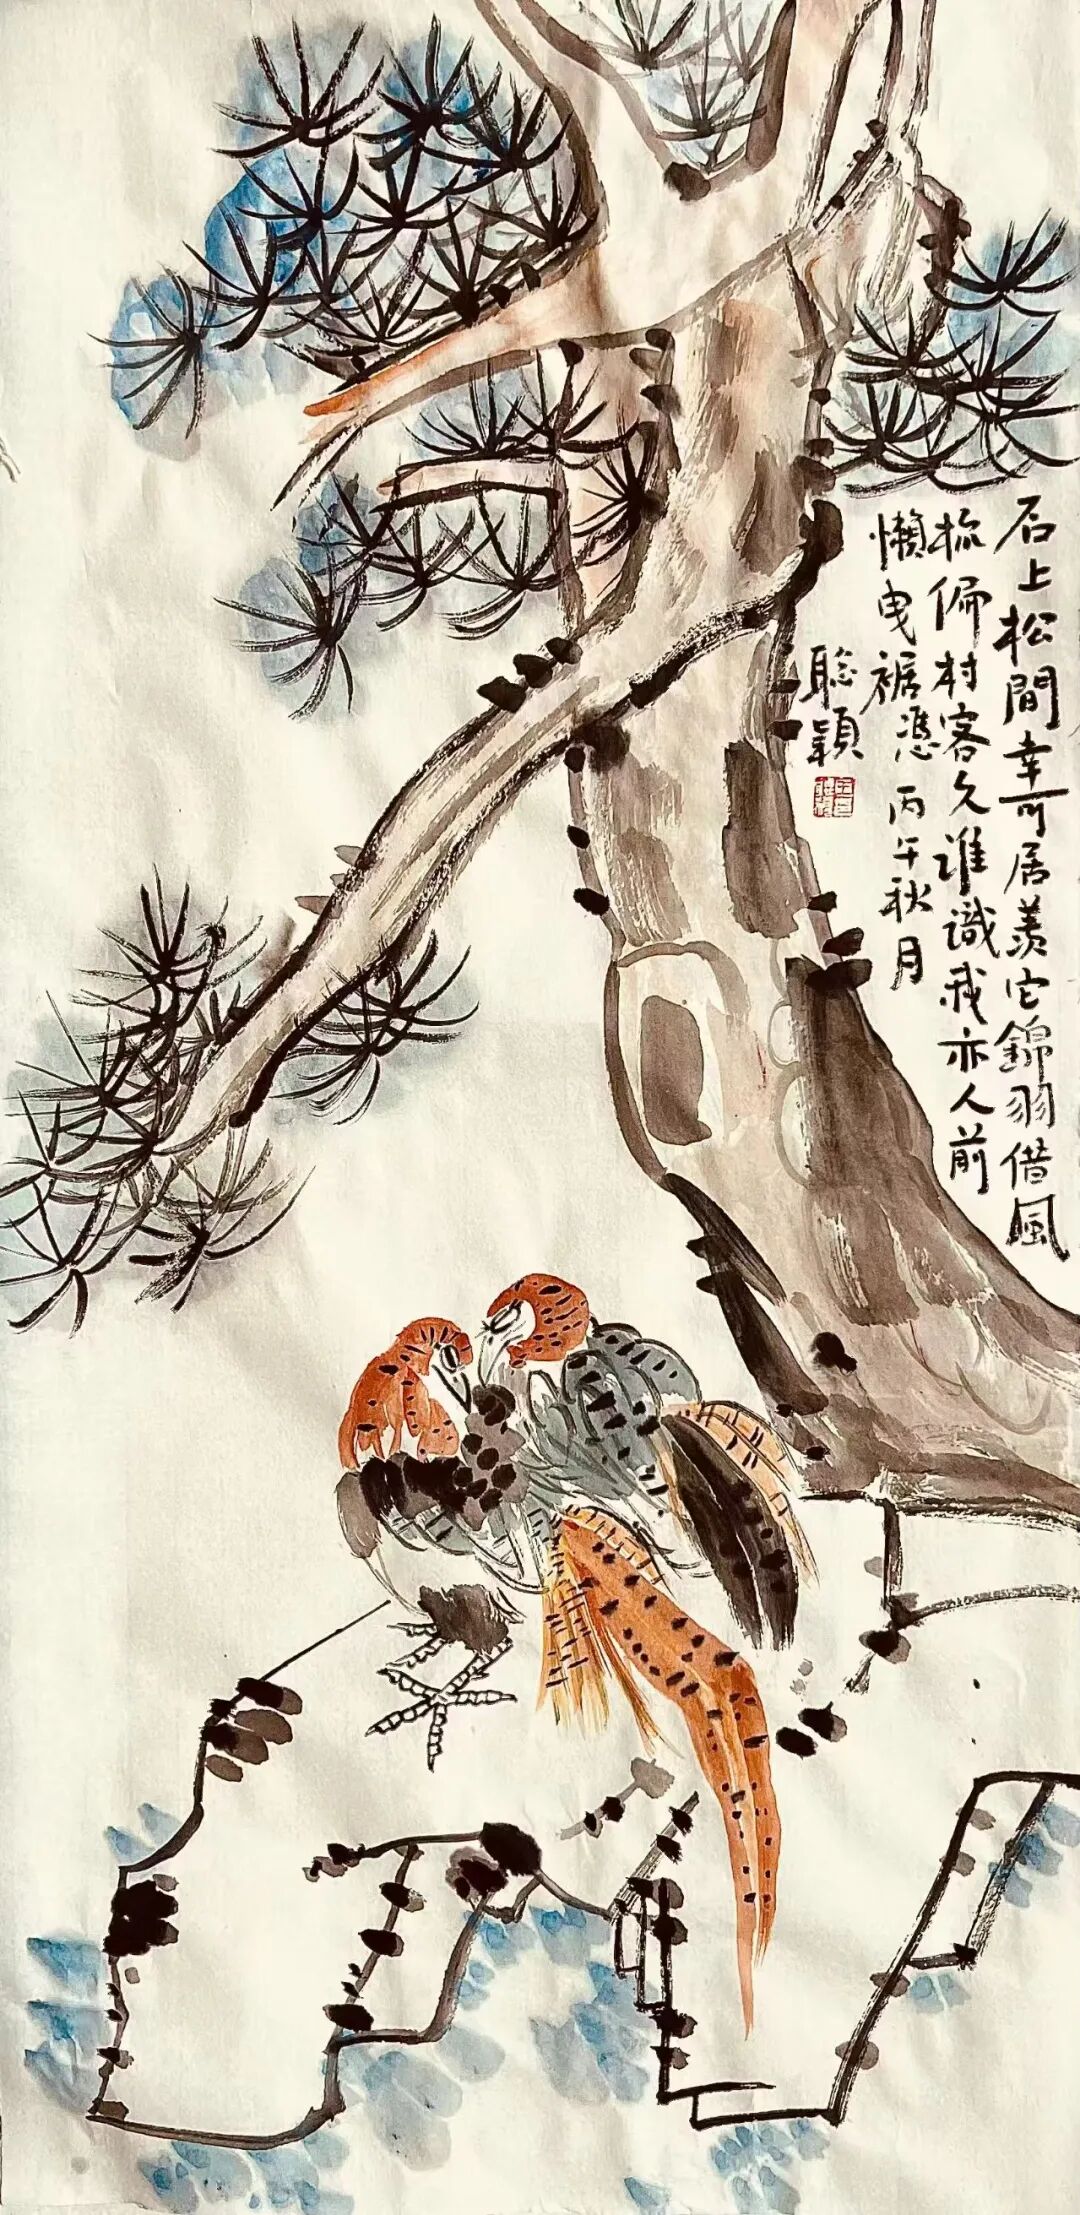 石上松間幸可居羨它錦羽借風
梳偏村客久谁識我亦人前
懶曳裾憑 丙午秋月
聡穎